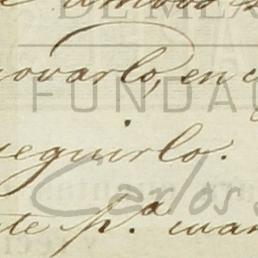 DE ME
ovarlo, en c
FUNDA
seguirlo.
Carlos
te p.ª man